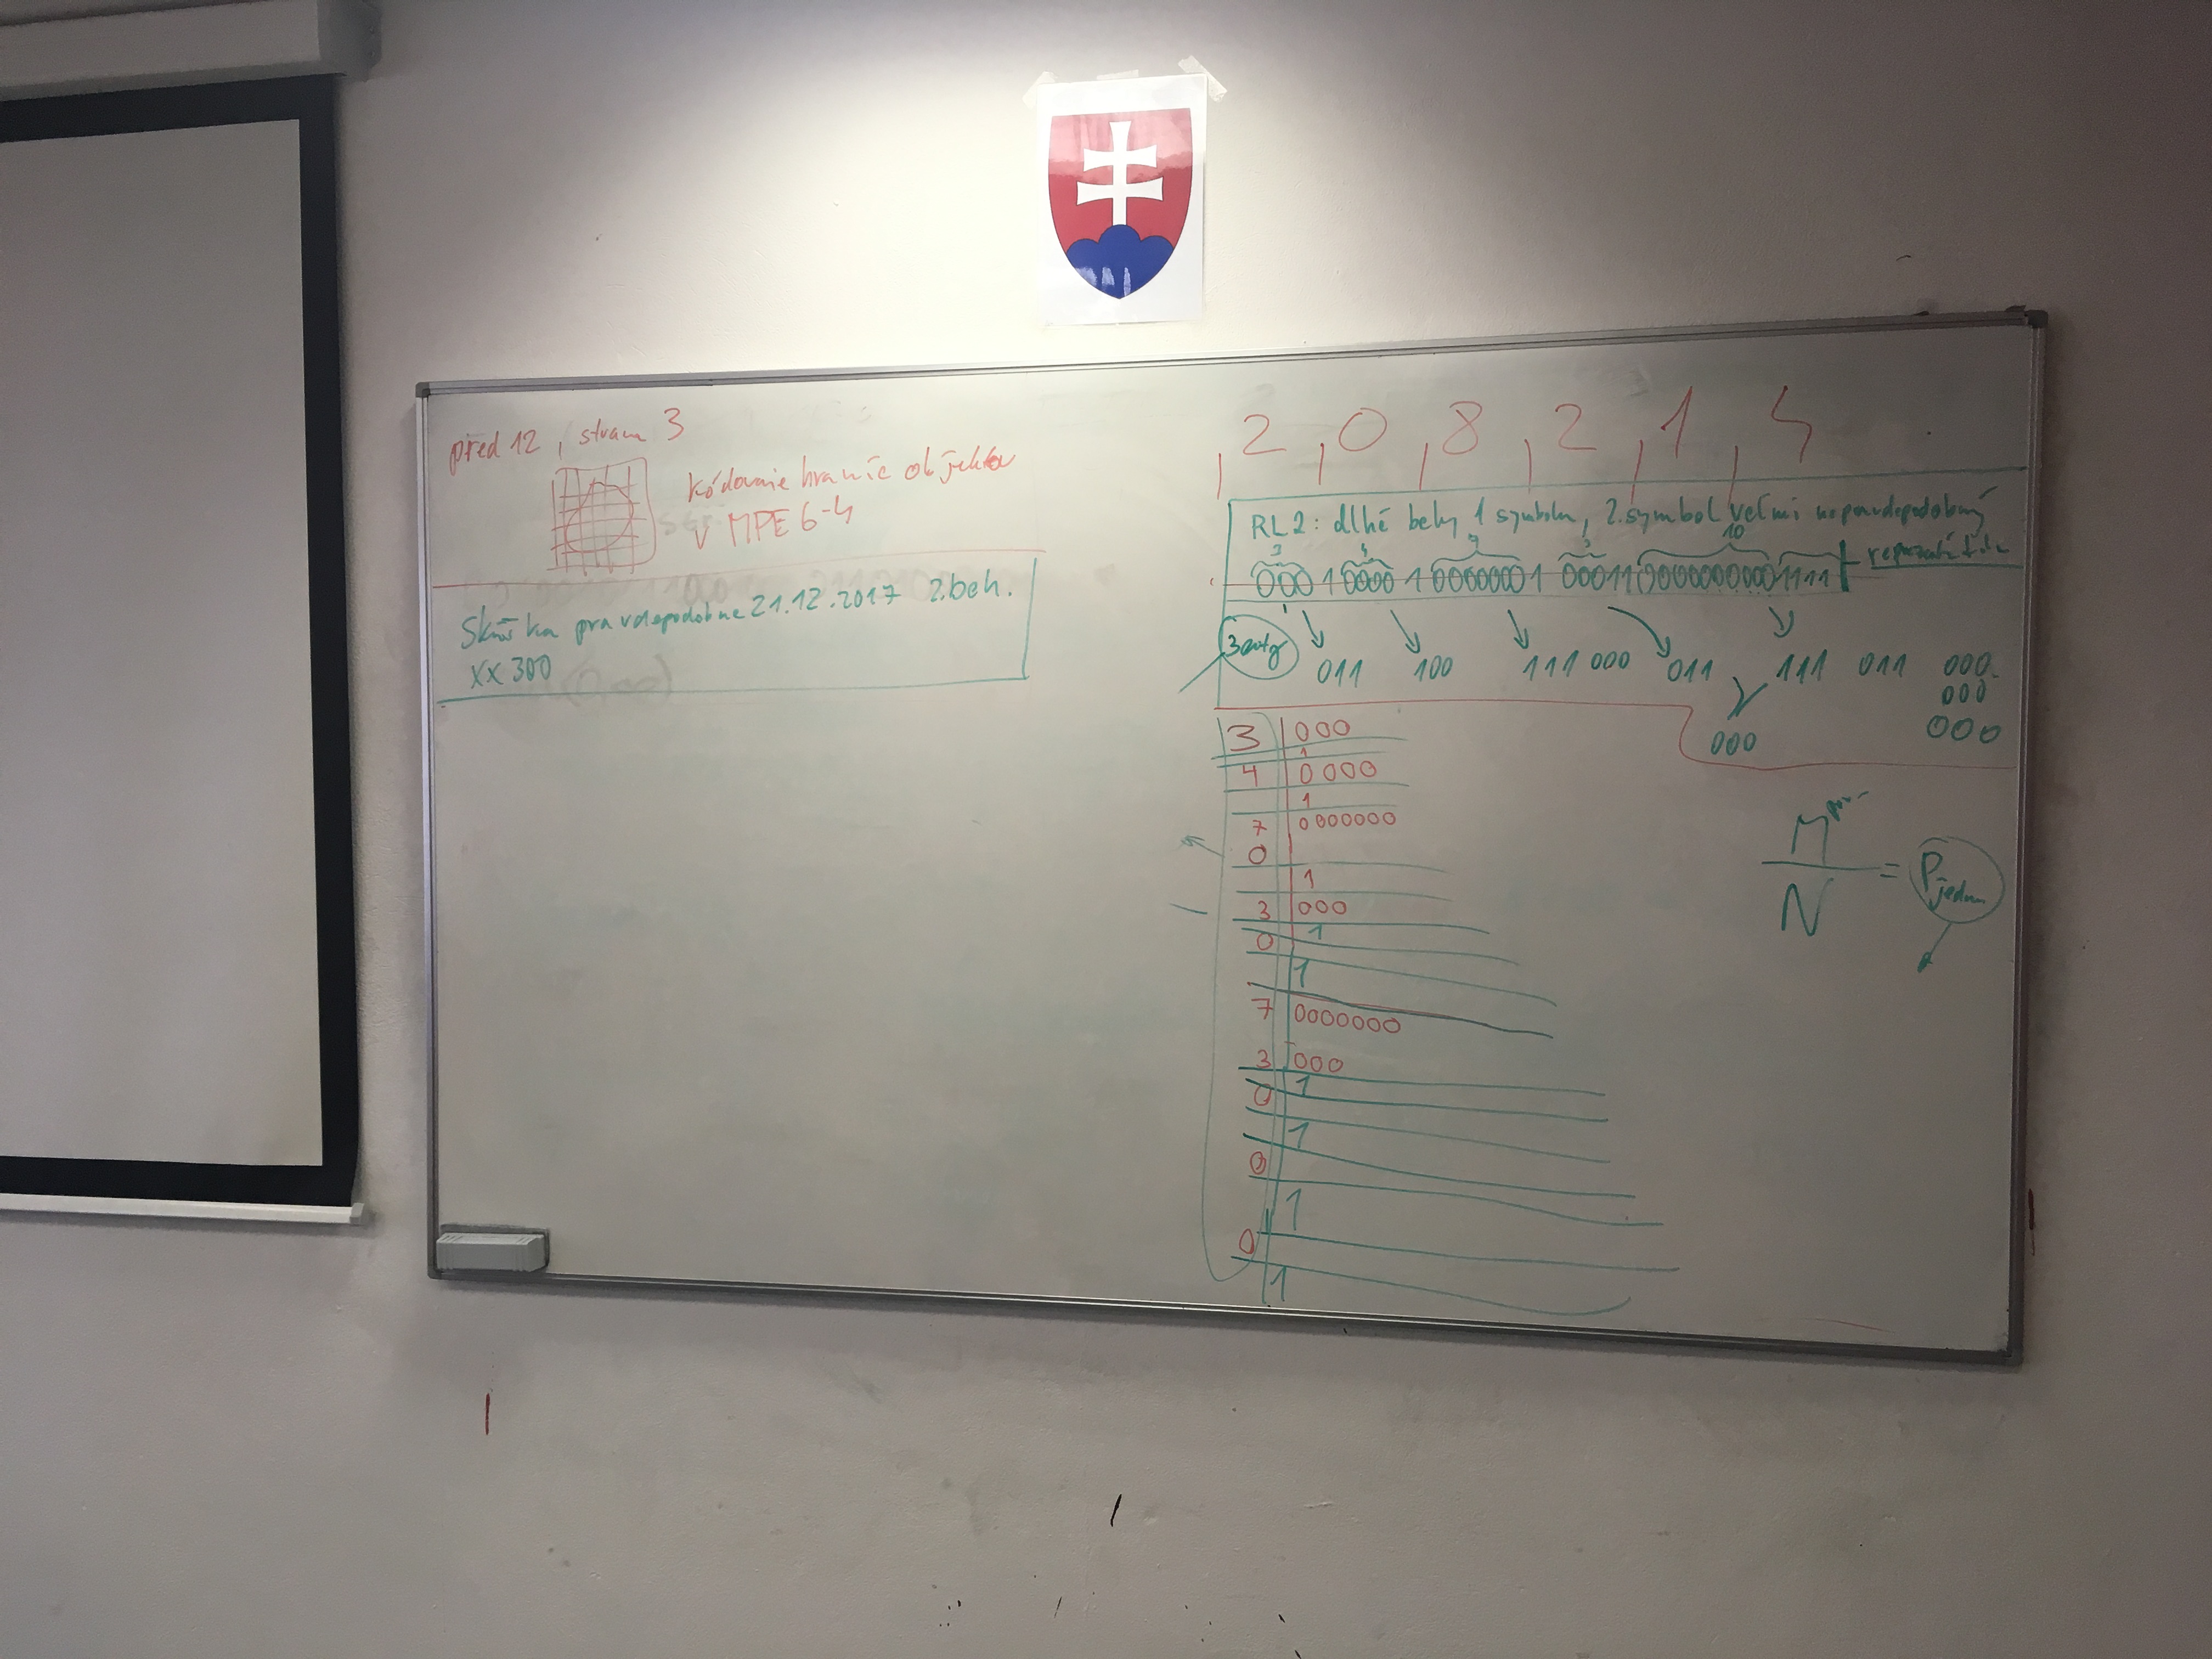 před 12, strana 3
kódovanie hraníc objektov
v MPEG-4
Skúška pravdepodobne 21.12.2017 2.beh.
XX300
,2,0,8,2,1,4
RL2: dlhé behy 1 symbolu, 2. symbol veľmi nepravdepodobný
3 4 7 3 10
000 1 0000 1 0000000 1 00011 0000000000 1111
3 bity
011 100 111 000 011 111 011 000
000
000 000
3 000
1
4 0000
1
7 0000000
0
1
3 000
0 1
1
7 0000000
3 000
0 1
1
0
1
0
1
M
N = Pjedna